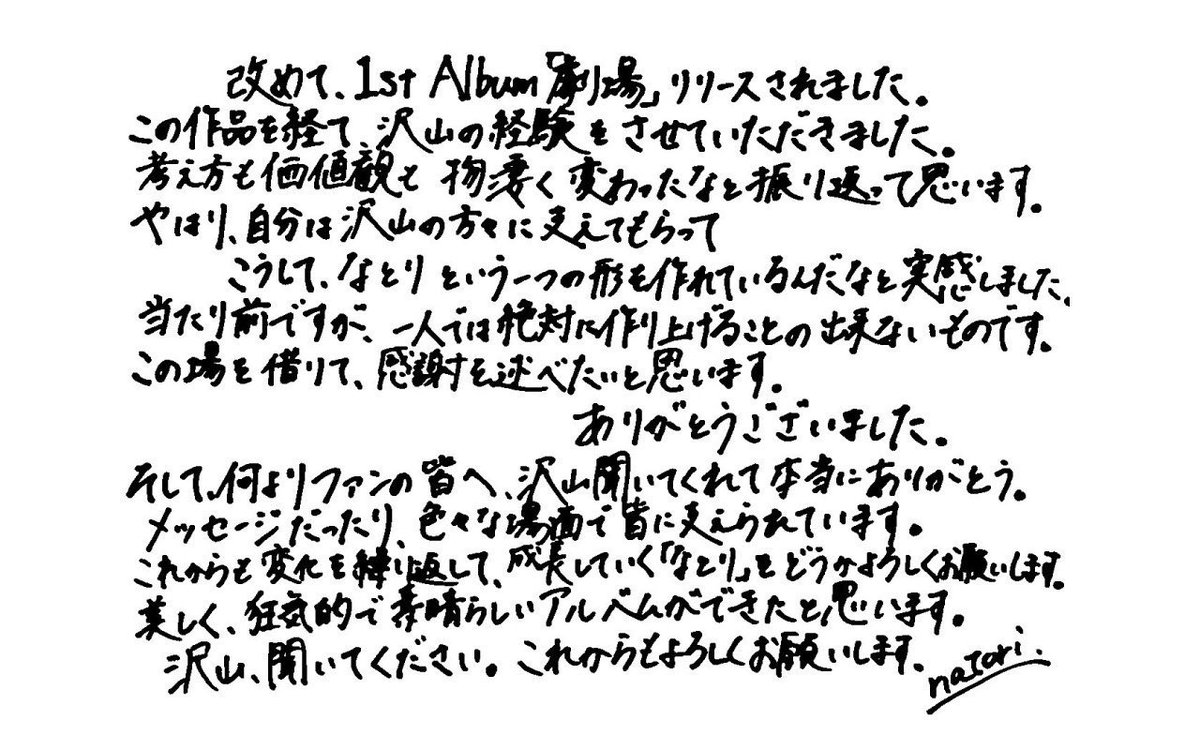 改めて、1st Album「劇場」リリースされました。
この作品を経て、沢山の経験をさせていただきました。
考え方も価値観も物凄く変わったなと振り返って思います。
やはり、自分は沢山の方々に支えてもらって
こうして、なとりという一つの形を作れているんだなと実感しました。
当たり前ですが、一人では絶対に作り上げることの出来ないものです。
この場を借りて、感謝を述べたいと思います。
ありがとうございました。
そして、何よりファンの皆へ、沢山聞いてくれて本当にありがとう。
メッセージだったり、色々な場面で皆に支えられています。
これからも変化を繰り返して、成長していく「なとり」をどうかよろしくお願いします。
美しく、狂気的で素晴らしいアルバムができたと思います。
沢山、聞いてください。これからもよろしくお願いします。
natori.